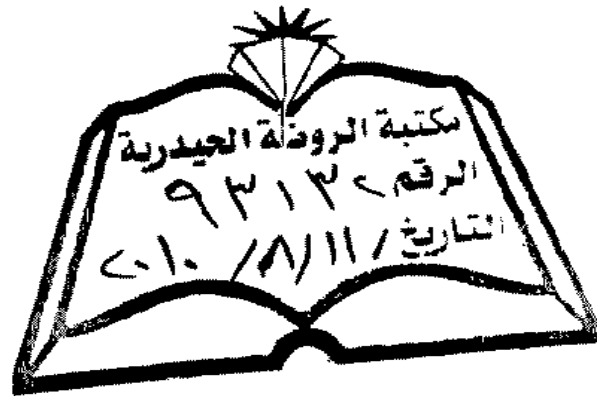 مكتبة الروضة الحيدرية
الرقم ٩٣١٣٢
التاريخ / ١١ / ٨ / ٢٠١٠